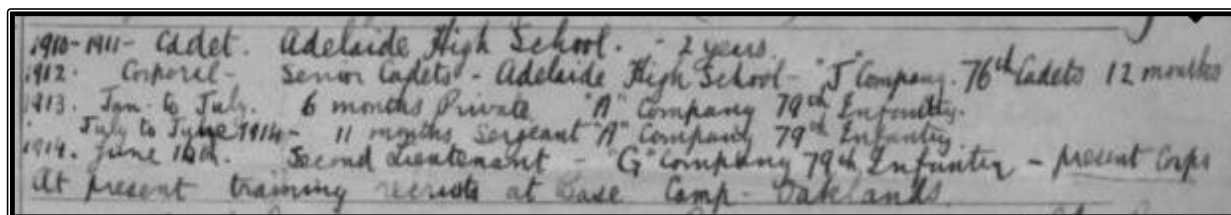 1910-1911 - Cadet. Adelaide High School. - 2 years.
1912. Corporal - Senior Cadets - Adelaide High School - "J" Company. 76th Cadets 12 months
1913. Jan. to July. 6 months Private "A" Company 79th Infantry.
" July to June 1914 - 11 months Sergeant "A" Company 79th Infantry
1914. June 16th. Second Lieutenant - "G" Company 79th Infantry - present Corps
At present training recruits at Base Camp - Oaklands.